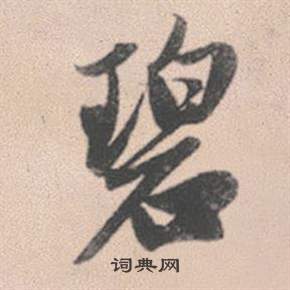 碧
词典网